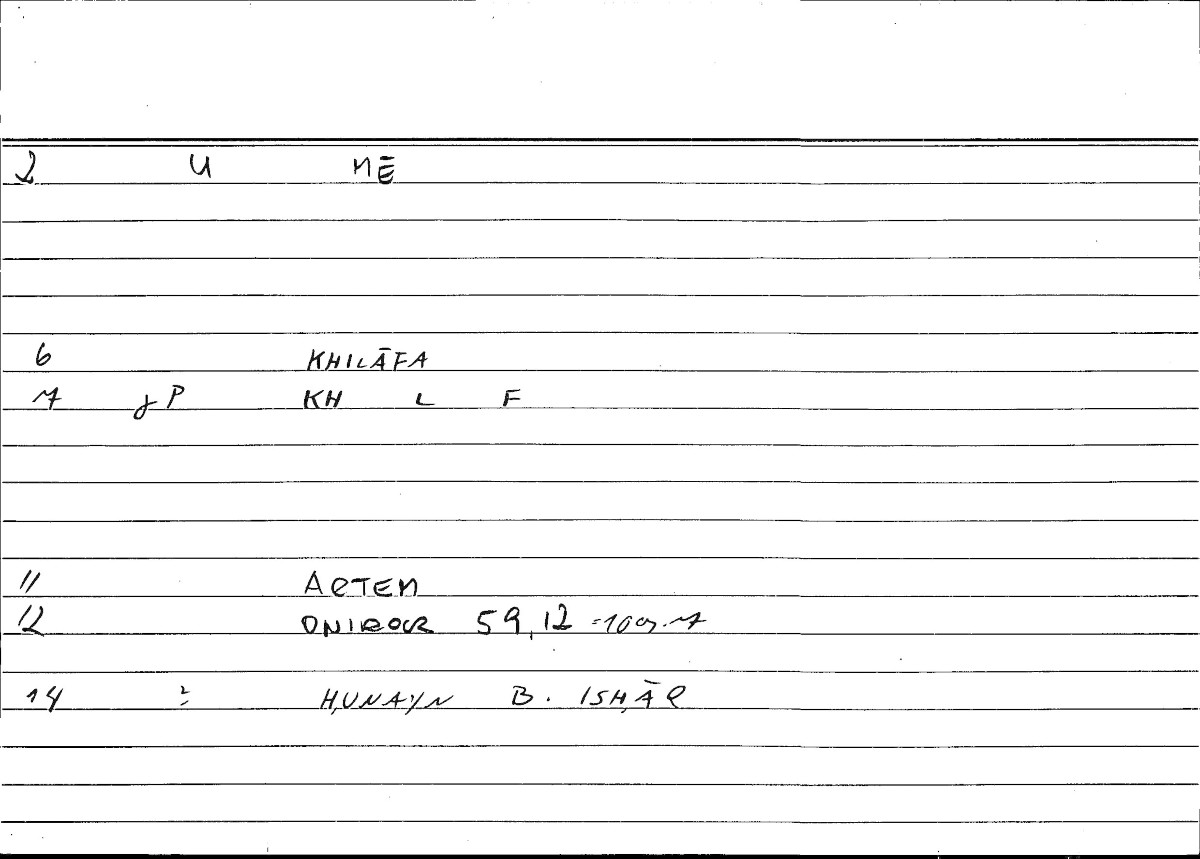 2 U MĒ
6 KHILĀFA
7 γP KH L F
11 ARTEM
12 ONIROCR 59,12 -109.7
14 2 ḤUNAYN B. ISḤĀQ